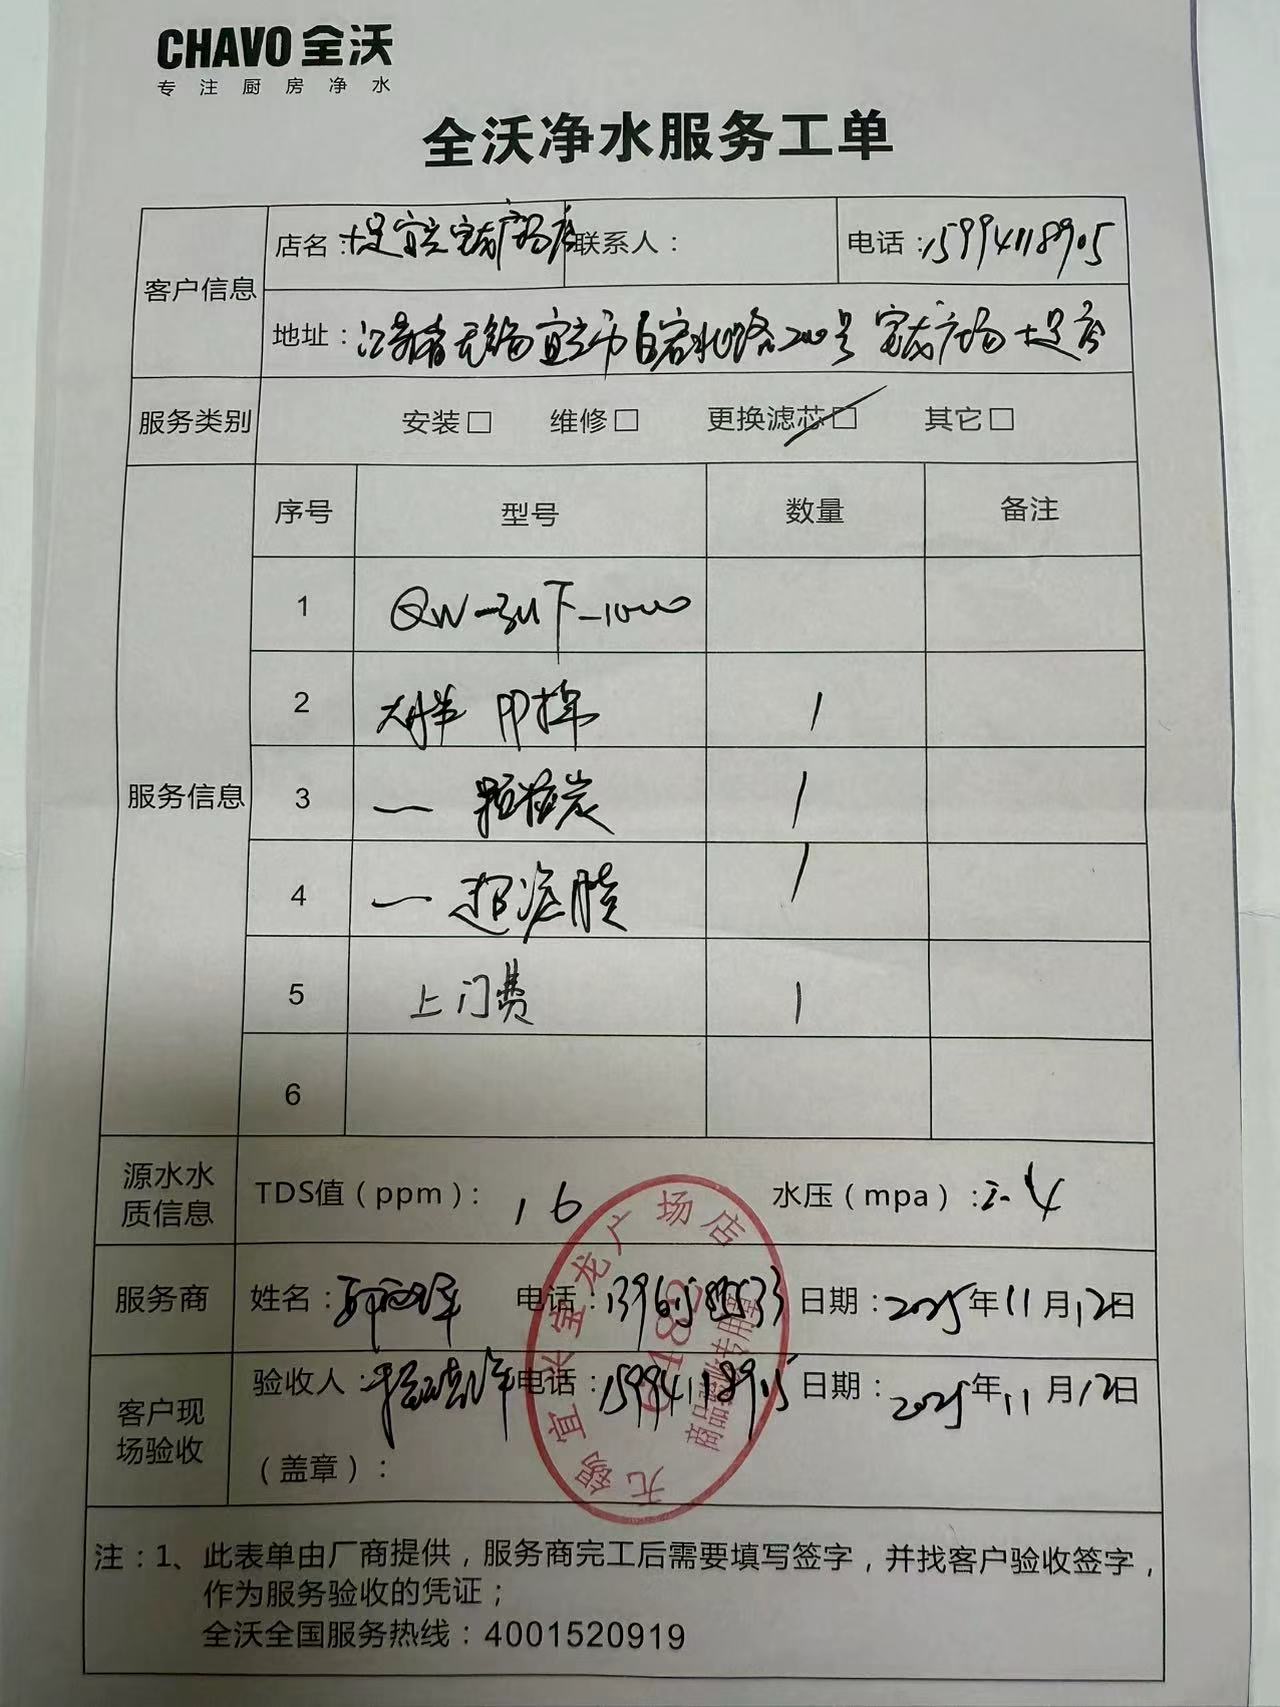 CHAVO 全沃
专注厨房净水
全沃净水服务工单
客户信息
店名：宜兴宝龙广场店 联系人： 电话：15994118905
地址：江苏省无锡宜兴市白宕北路200号 宝龙广场 店
服务类别 安装□ 维修□ 更换滤芯□ 其它□
服务信息
序号 型号 数量 备注
1 QW-3U下-1000
2 大胖 PP棉 1
3 — 颗粒炭 1
4 — 超滤膜 1
5 上门费 1
6
源水水质信息 TDS值（ppm）：16 水压（mpa）：0.4
服务商 姓名： 电话： 日期：2025年11月12日
客户现场验收 验收人： 电话：15994118905 日期：2025年11月12日
（盖章）：
无锡宜兴宝龙广场店
注：1、此表单由厂商提供，服务商完工后需要填写签字，并找客户验收签字，
作为服务验收的凭证；
全沃全国服务热线：4001520919